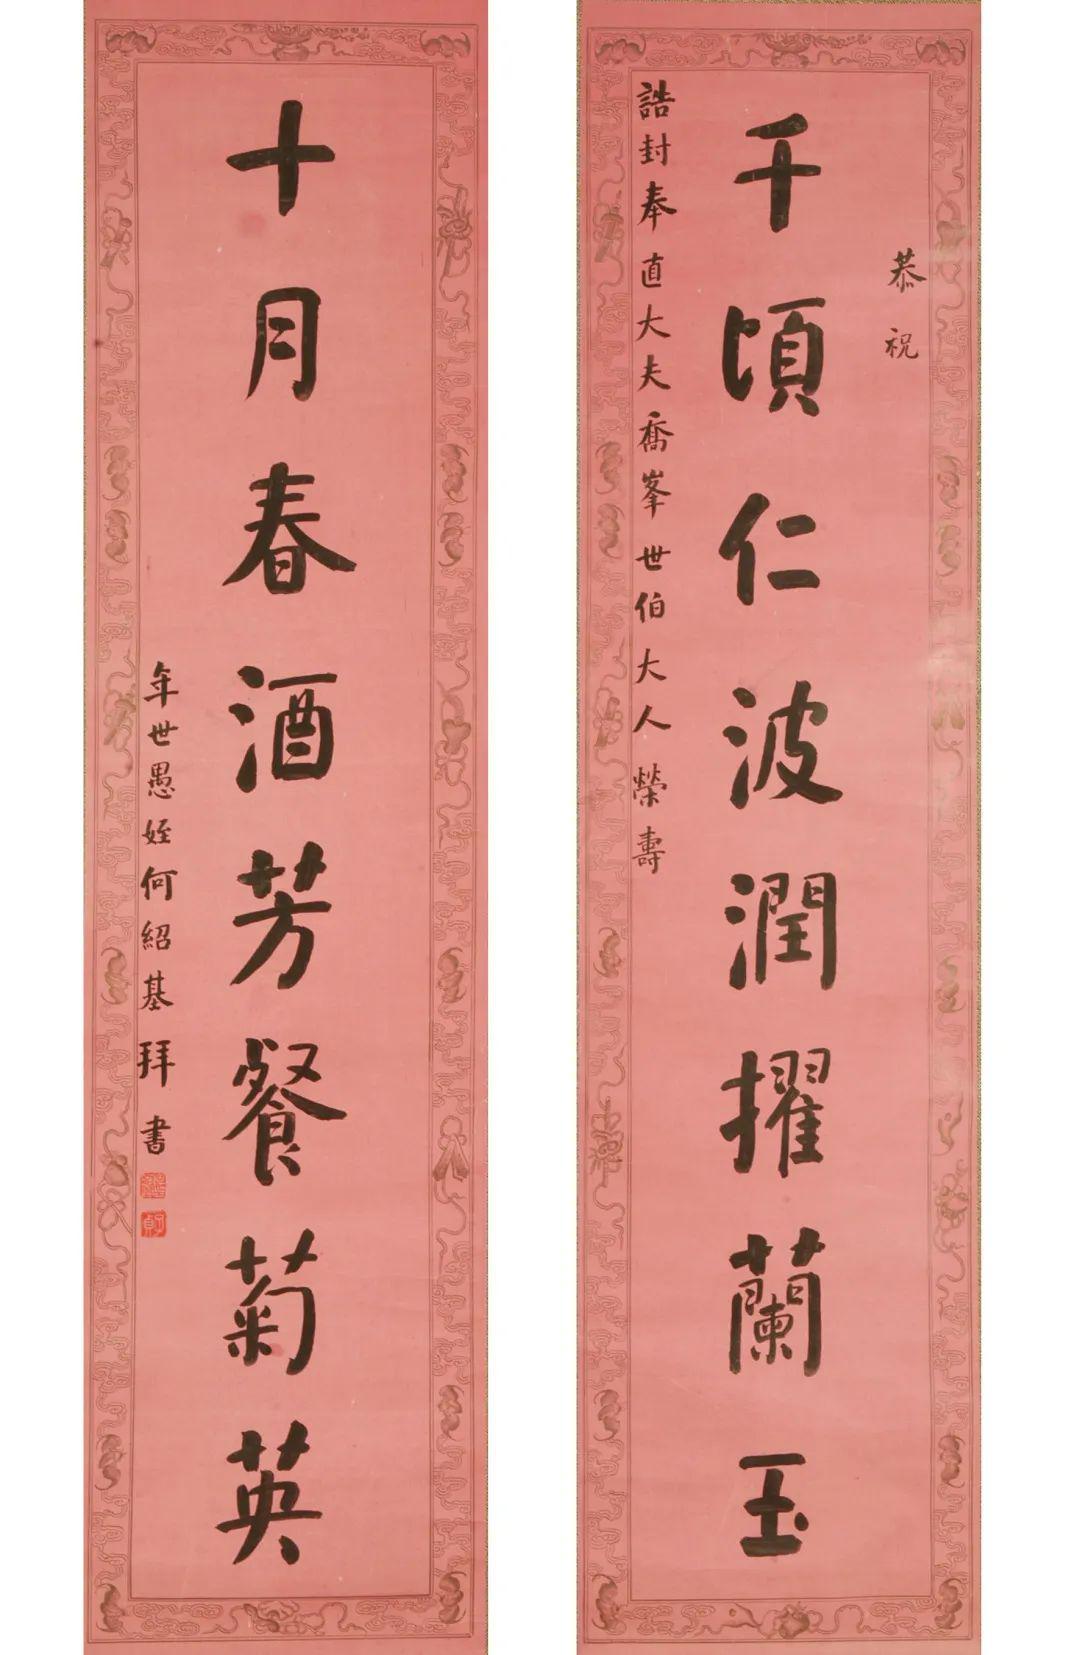 恭祝
千頃仁波潤擢蘭玉
誥封奉直大夫喬峯世伯大人榮壽
十月春酒芳餐菊英
年世愚姪何紹基拜書
子貞